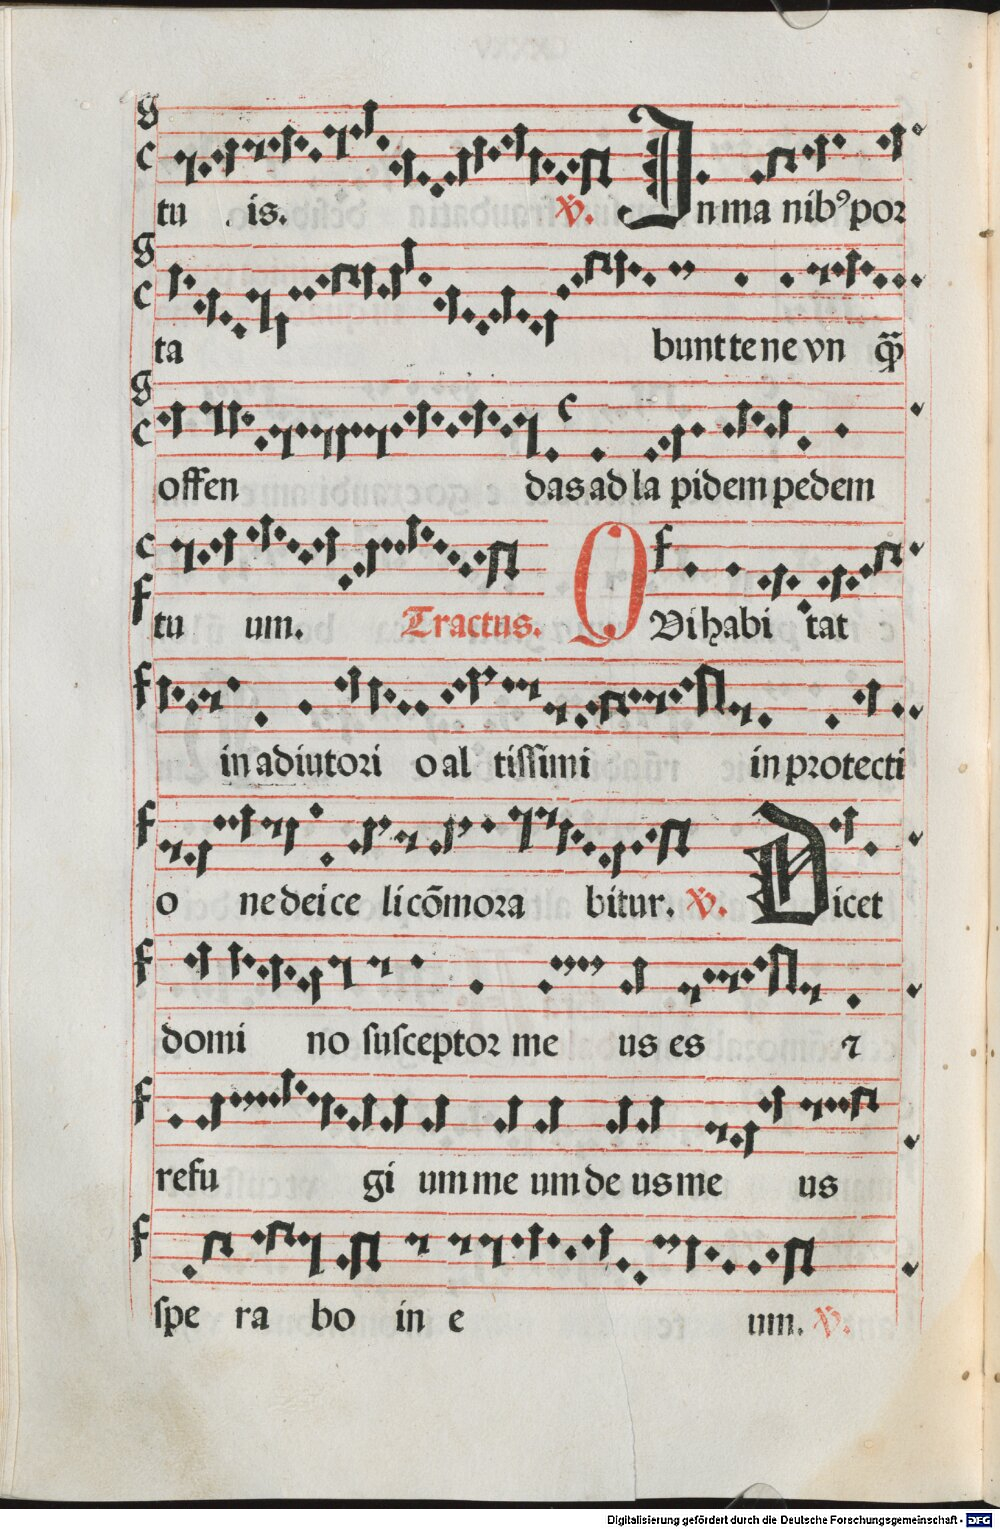 tu is. ℣. In ma nibꝰ por
ta bunt te ne vn q̃
offen das ad la pidem pedem
tu um. Tractus. QVi habi tat
in adiutori o al tissimi in protecti
o ne dei ce li cõmora bitur. ℣. Dicet
domi no susceptor me us es ⁊
refu gi um me um de us me us
spe ra bo in e um. ℣.
Digitalisierung gefördert durch die Deutsche Forschungsgemeinschaft - DFG